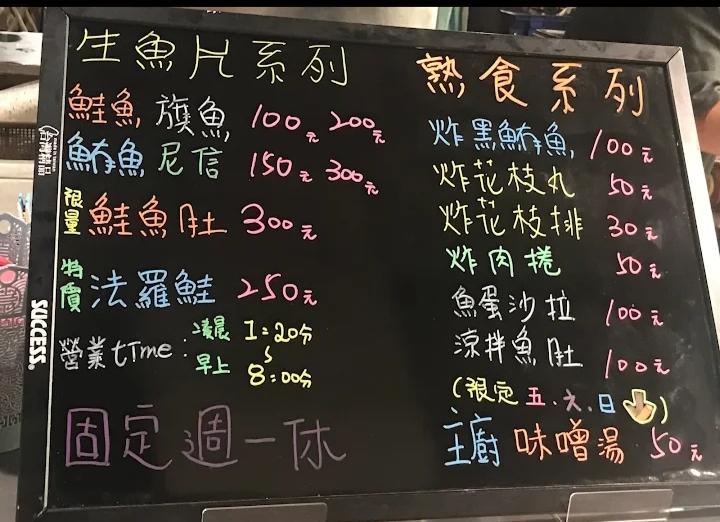 生魚片系列
鮭魚 旗魚 100元 200元
鮪魚 尼信 150元 300元
限量 鮭魚肚 300元
特價 法羅鮭 250元
營業time：凌晨 1:20分
～
早上 8:00分
固定週一休
熟食系列
炸黑鮪魚 100元
炸花枝丸 50元
炸花枝排 30元
炸肉捲 50元
魚蛋沙拉 100元
涼拌魚肚 100元
(限定五.六.日↓)
主廚味噌湯 50元
SUCCESS.